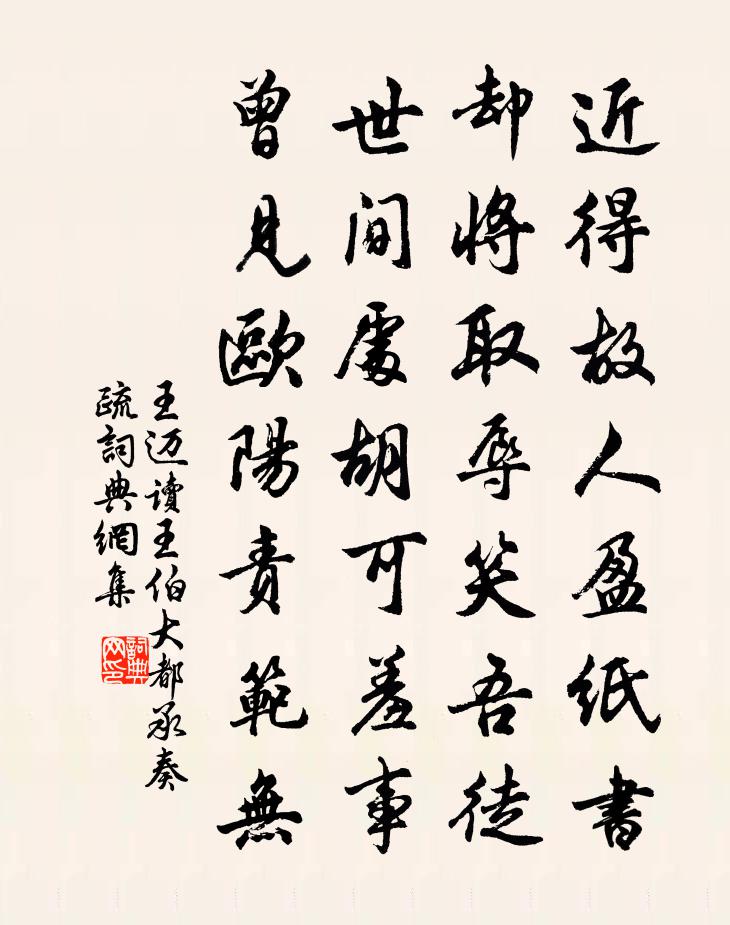 近得故人盈纸書
却將取辱笑吾徒
世間處胡可羞事
曾見歐陽責範無
王迈讀王伯大都承奏
疏詞典網集
詞典
网印